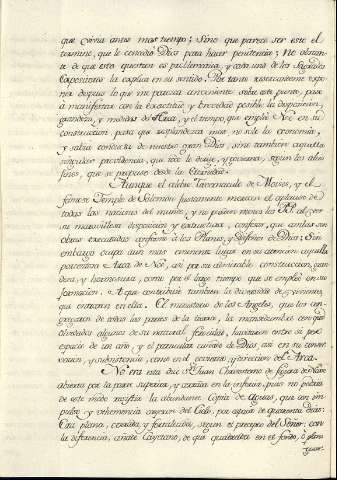 que corria antes mas tiempo; Sino que parece ser este el
termino, que le concedio Dios para hacer penitencia; No obstan-
te de que esta question es problematica, y cada uno de los Sagrados
Expositores la explica en su sentido. Por tanto reservandome expo-
ner despues lo que me parezca conveniente sobre este punto, paso
à manifestar con la exactitud y brevedad posible la disposicion,
grandeza, y medidas del Arca, y el tiempo que empleò Noè en su
construccion para que resplandezca mas no solo la economia,
y sabia conducta de nuestro gran Dios, sino tambien aquella
singular providencia, que todo lo dirije, y govierna, segun los altos
fines, que se propuso desde la Eternidad.
Aunque el celebre Tavernaculo de Moyses, y el
famoso Templo de Salomon justamente merecen el aplauso de
todas las naciones del mundo, y no pudiera menos la al ver
su maravillosa disposicion y estructura, confesar, que ambas son
obras executadas conforme à los Planos, y Diseños de Dios; Sin
embargo ocupa aun mas eminente lugar en su atencion aquella
portentosa Arca de Noè, asi por su admirable construccion, gran-
deza, y hermosura, como por el largo tiempo que se empleò en su
formacion. A que contribuiò tambien la diversidad de vivientes,
que entraron en ella. El ministerio de los Angeles, que los con-
gregaron de todas las partes de la tierra, la mansedumbre con que
olvidados algunos de su natural ferocidad, habitaron entre si por
espacio de un año, y el particular cuidado de Dios asi en su conser-
vacion, y subsistencia, como en el govierno, y direccion del Arca.
No era esta dice Sn. Juan Chrisostomo de figura de Nave
abierta por la parte superior, y en la inferior, pues no podria
de este modo resistir la abundante Copia de Aguas, que con im-
pulso y vehemencia cayeron del Cielo, por espacio de quarenta dias:
Era plana, cerrada, y fortalecida, segun el precepto del Señor: con
la diferencia, añade Cayetano, de que quadrada en el fondo, ò plano